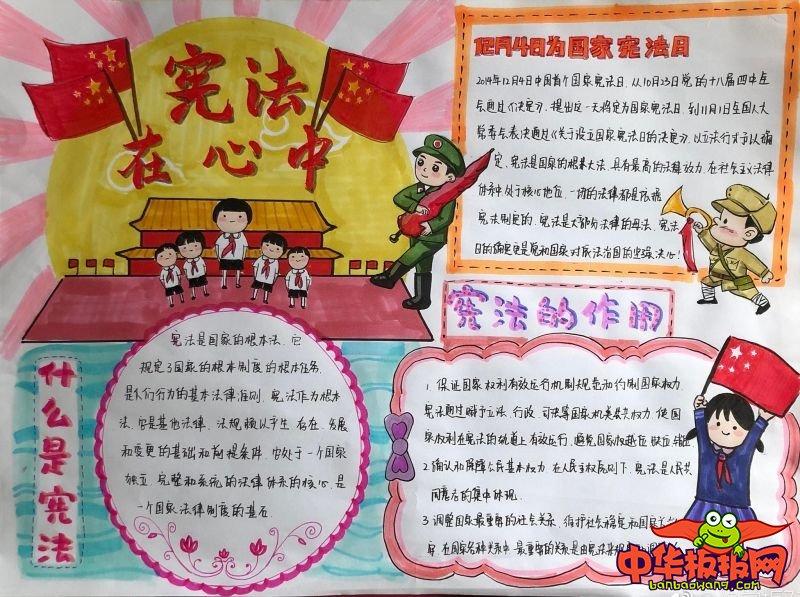 宪法
在心中
12月4日为国家宪法日
2014年12月4日中国首个国家宪法日，从10月23日党的十八届四中全
会通过《决定》，提出这一天将定为国家宪法日，到11月1日全国人大
常委会表决通过《关于设立国家宪法日的决定》，以立法形式予以确
定，宪法是国家的根本大法，具有最高的法律效力，在社会主义法律
体系中处于核心地位，一切的法律都是依据
宪法制定的，宪法是大部分法律的母法，宪法
日的确定也是党和国家对依法治国的坚强决心！
什么是宪法
宪法是国家的根本法，它
规定了国家的根本制度的根本任务，
是人们行为的基本法律准则，宪法作为根本
法，它是其他法律、法规赖以产生、存在、发展
和变更的基础和前提条件，也处于一个国家
独立、完整和系统的法律体系的核心，是
一个国家法律制度的基石
宪法的作用
1. 保证国家权利有效运行机制规范和约制国家权力，
宪法通过赋予立法、行政、司法等国家机关公共权力，使国
家权利在宪法的轨道上有效运行，避免国家权越位 缺位 错位
2. 确认和保障公民基本权力，在人民主权原则下，宪法是人民共
同意志的集中体现
3. 调整国家最重要的社会关系，维护社会稳定和国家
在国家各种关系中，最重要的关系是由宪法来
中华板报网
banbaowang.com